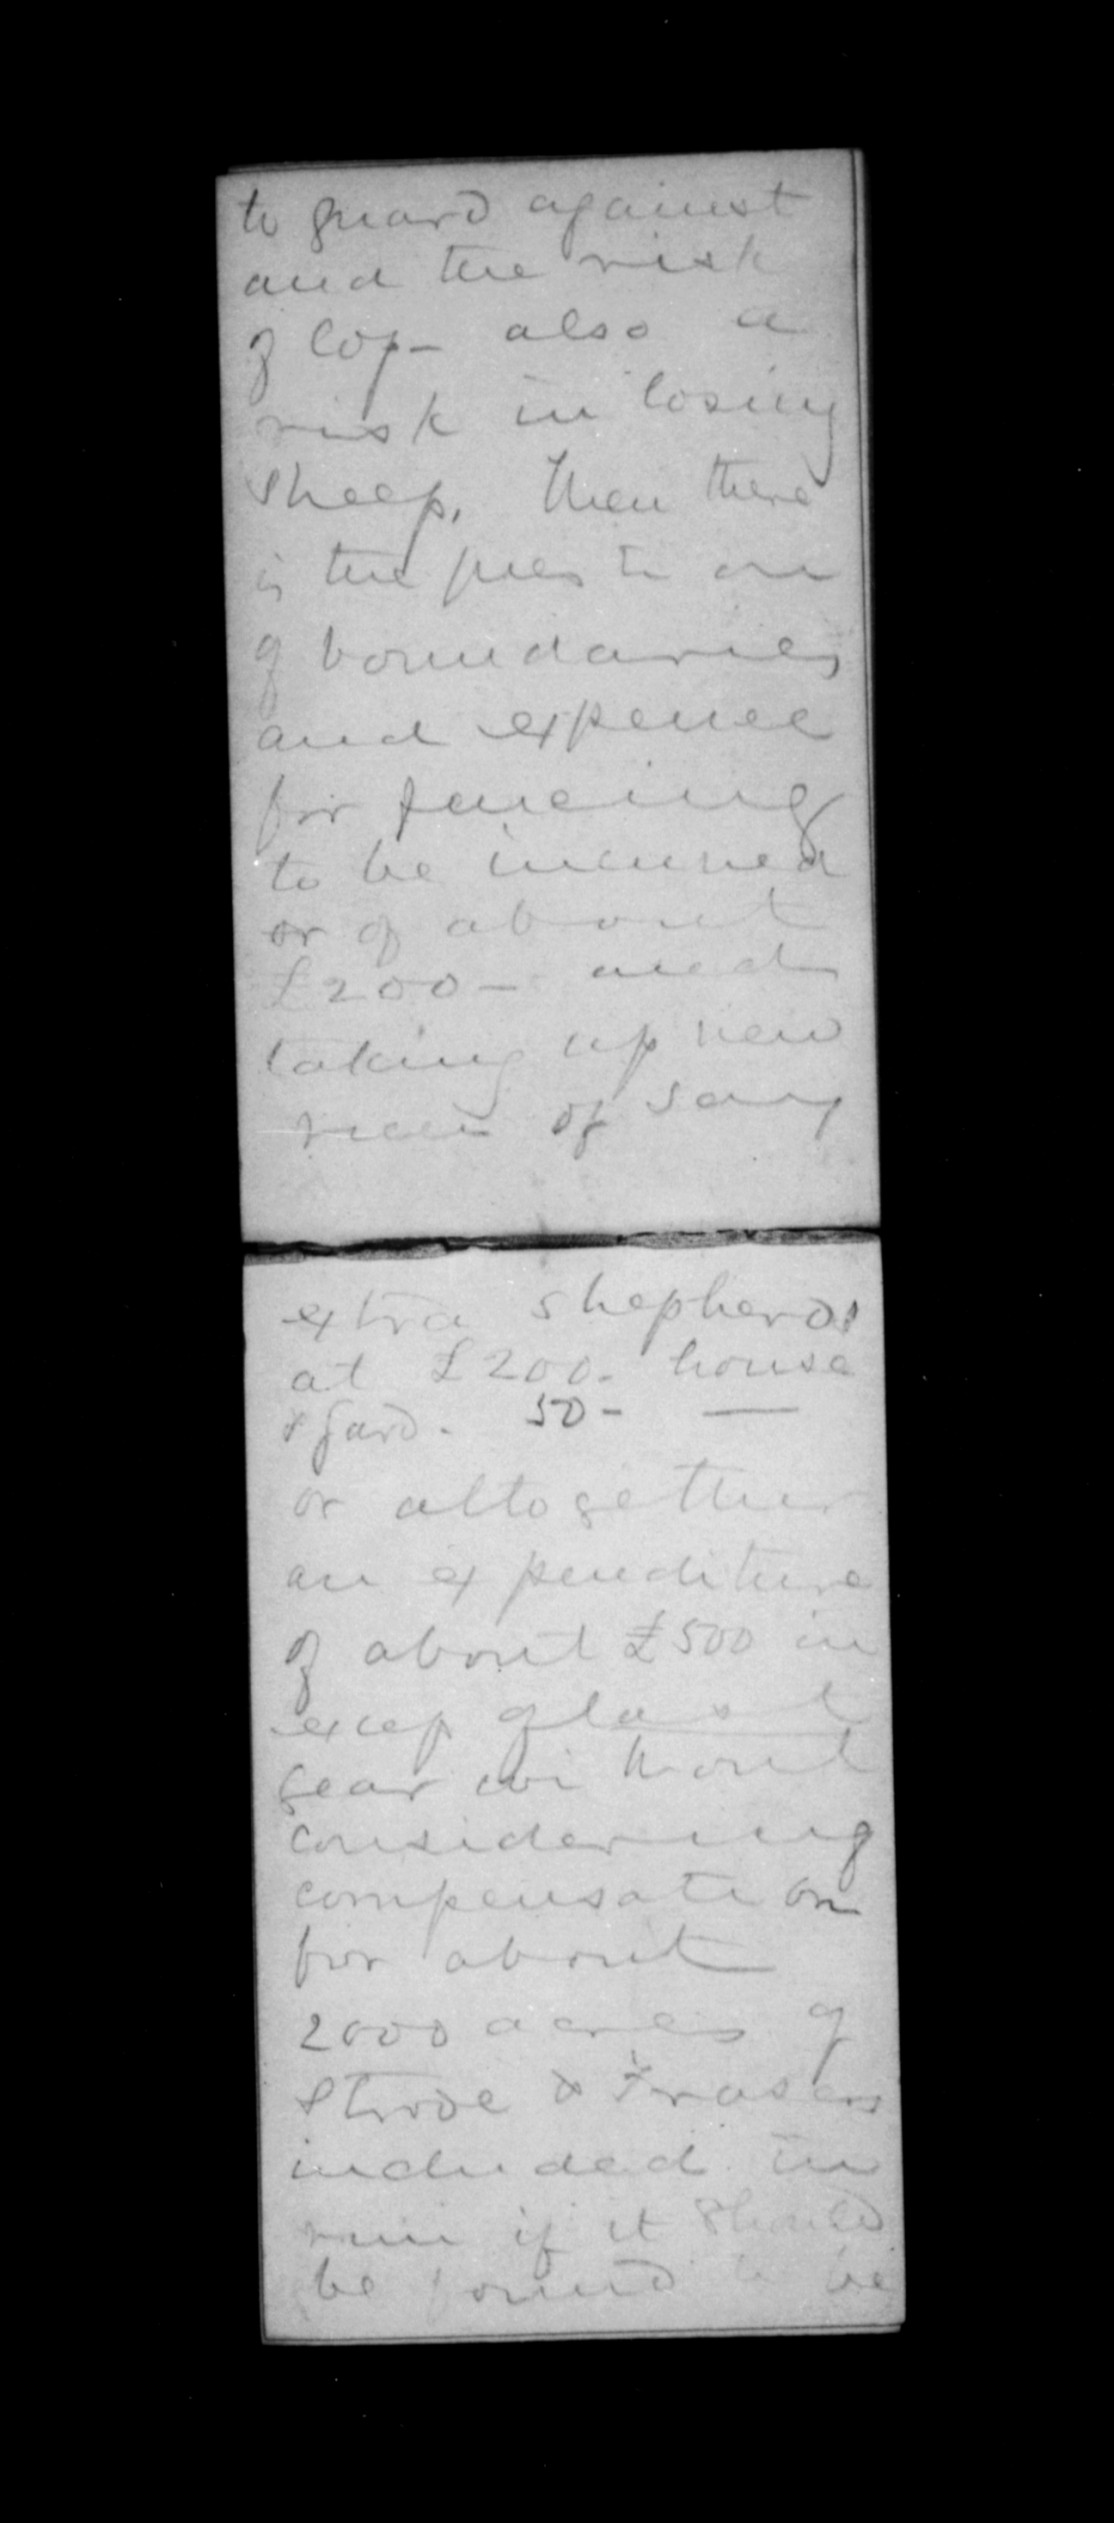 to guard against
and the risk
of lop - also a
risk in losing
sheep. Then there
is the question
of boundaries
and expence
for fencing
to be incurred
or of about
£200 - and
taking up new
of say
extra shepherds
at £200 - house
& gard. 50 - —
or altogether
an expenditure
of about £500 in
excep of last
year without
considering
compensation
for about
2000 acres of
Strode & Frasers
included in
run if it should
be found to be